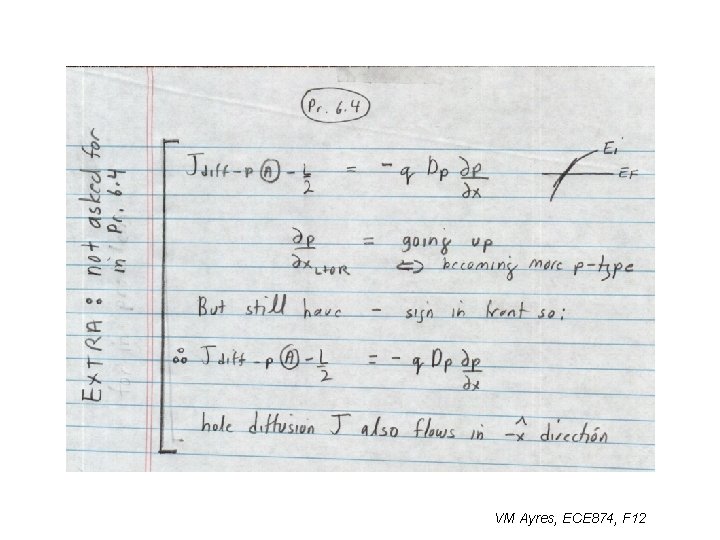 Pr. 6.4
EXTRA: not asked for
in Pr. 6.4
J diff-p Ⓐ - L/2 = - q Dp ∂p/∂x
Ei
EF
∂p/∂x LtoR = going up
⇔ becoming more p-type
But still have - sign in front so:
∴ J diff-p Ⓐ - L/2 = - q Dp ∂p/∂x
hole diffusion J also flows in -x̂ direction
VM Ayres, ECE874, F12